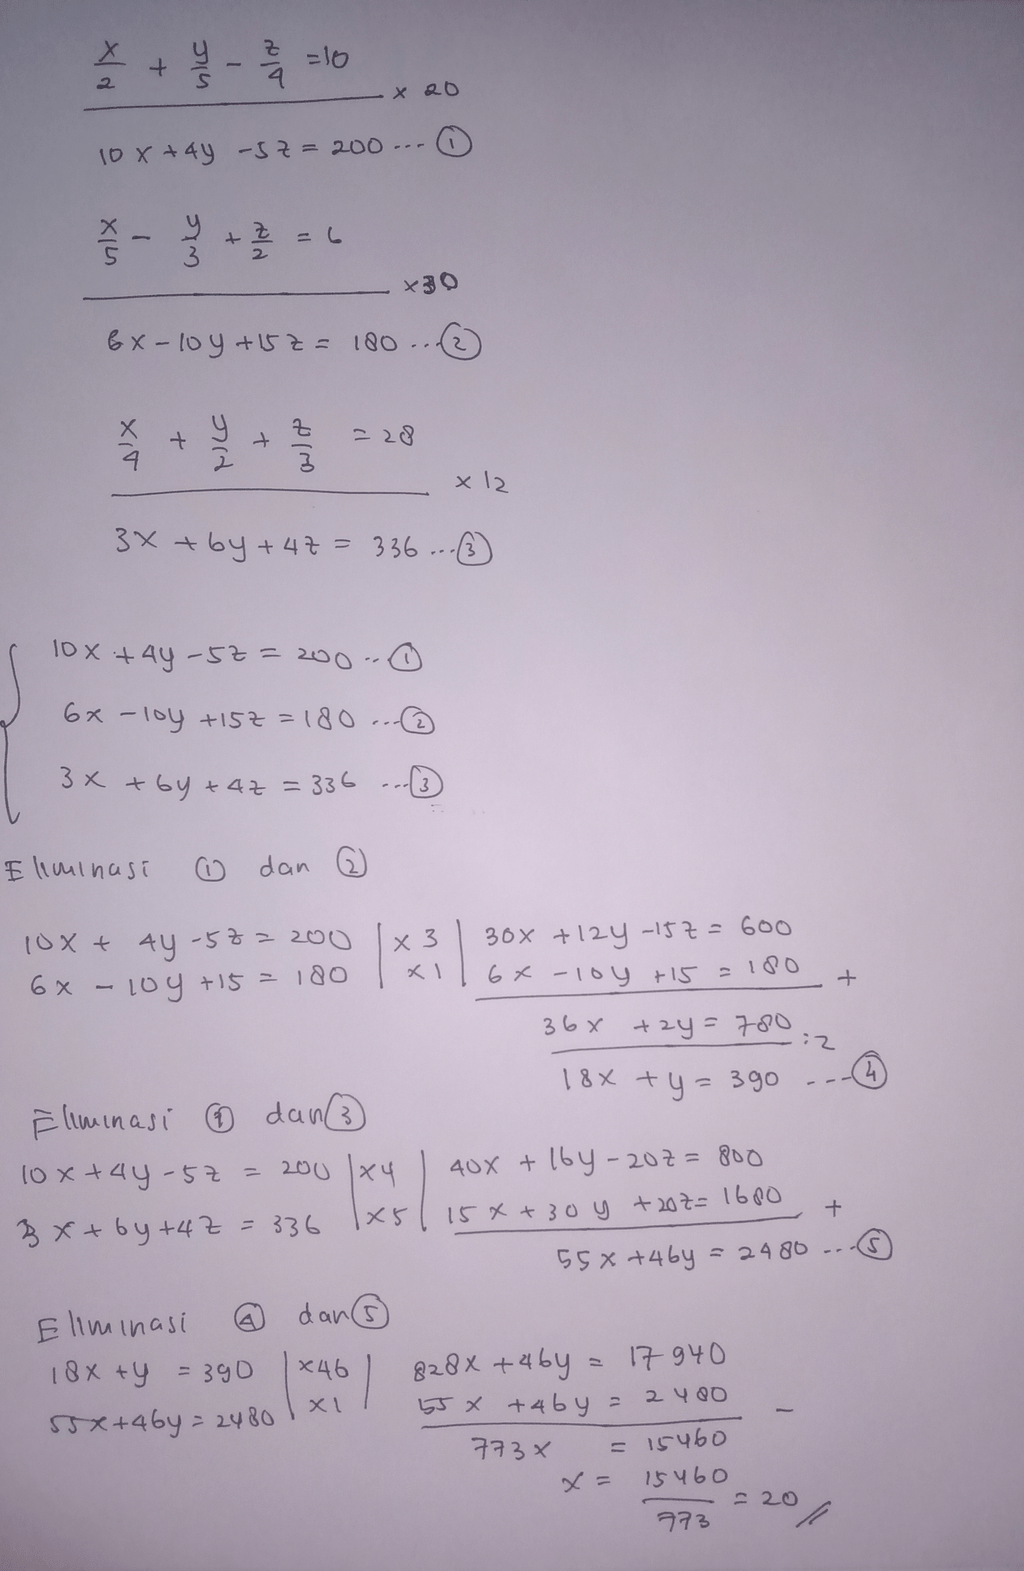 x/2 + y/5 - z/4 = 10
x 20
10x + 4y - 5z = 200 ... ①
x/5 - y/3 + z/2 = 6
x 30
6x - 10y + 15z = 180 ... ②
x/4 + y/2 + z/3 = 28
x 12
3x + 6y + 4z = 336 ... ③
10x + 4y - 5z = 200 .. ①
6x - 10y + 15z = 180 ... ②
3x + 6y + 4z = 336 ... ③
Eliminasi ① dan ②
10x + 4y - 5z = 200 | x 3 | 30x + 12y - 15z = 600
6x - 10y + 15 = 180 | x 1 | 6x - 10y + 15 = 180 +
36x + 2y = 780 : 2
18x + y = 390 --- ④
Eliminasi ① dan ③
10x + 4y - 5z = 200 | x4 | 40x + 16y - 20z = 800
3x + 6y + 4z = 336 | x5 | 15x + 30y + 20z = 1680 +
55x + 46y = 2480 ... ⑤
Eliminasi ④ dan ⑤
18x + y = 390 | x46 | 828x + 46y = 17940
55x + 46y = 2480 | x1 | 55x + 46y = 2480 -
773x = 15460
x = 15460/773 = 20 //